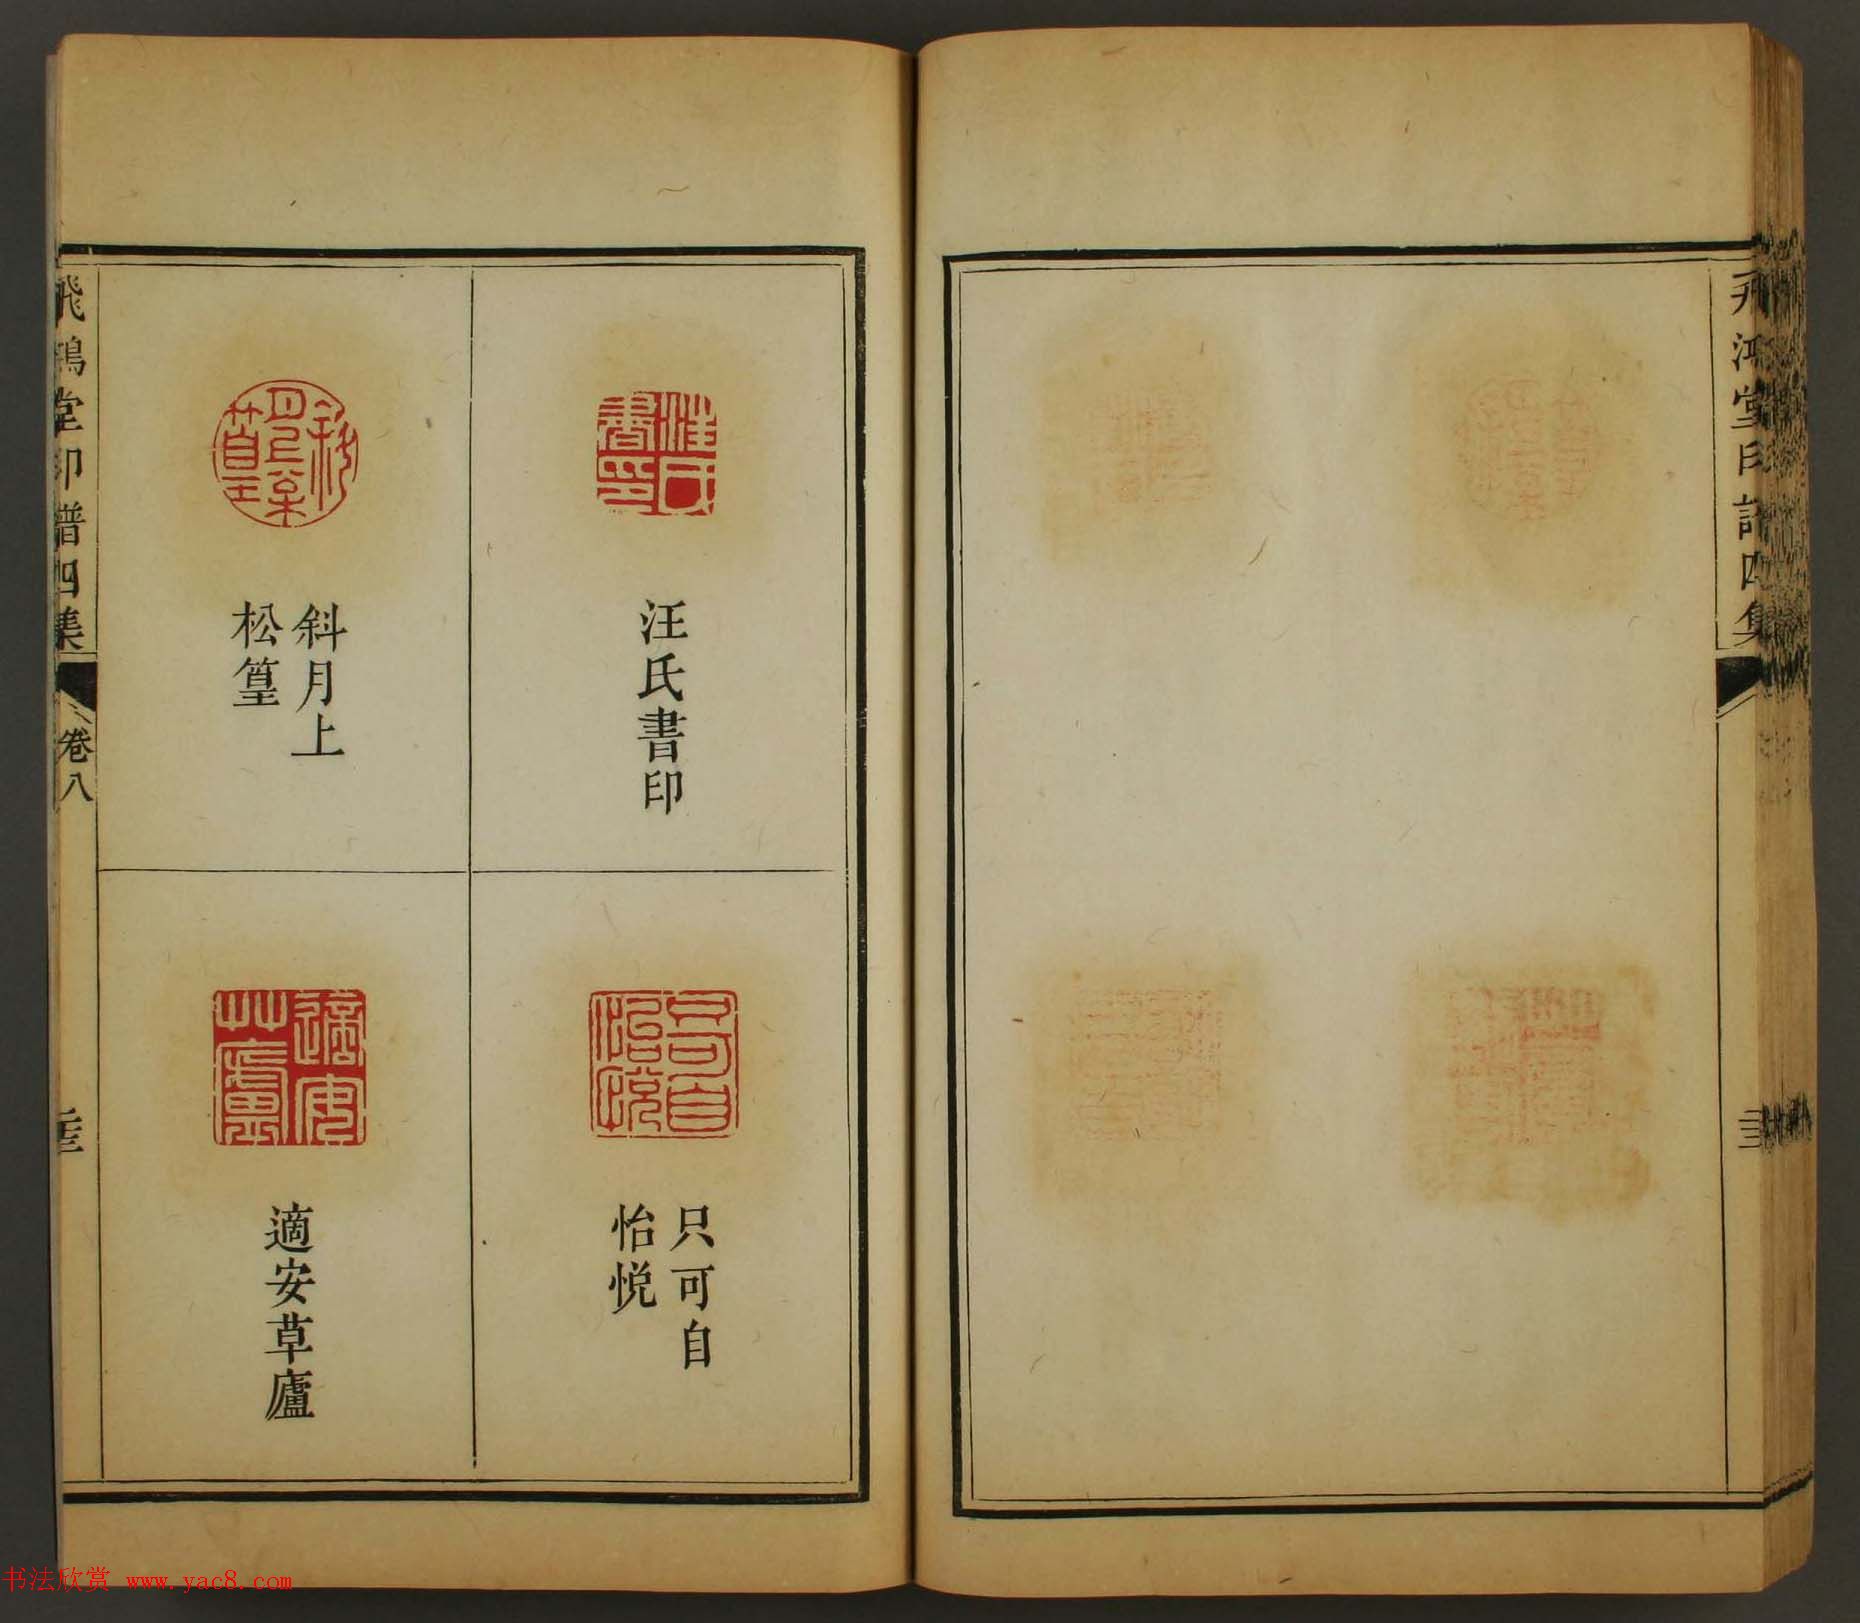 飛鴻堂印譜四集
卷八
汪氏書印
只可自
怡悅
斜月上
松篁
適安草廬
飛鴻堂印譜四集
书法欣赏 www.yac8.com